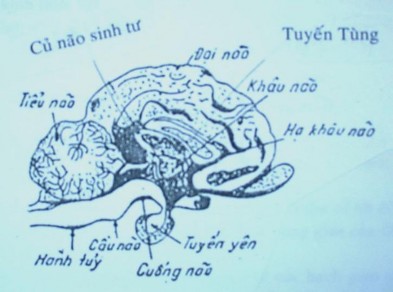 Củ não sinh tư
Tuyến Tùng
Đại não
Khâu não
Tiểu não
Hạ khâu não
Cầu não
Tuyến yên
Hành tủy
Cuống não